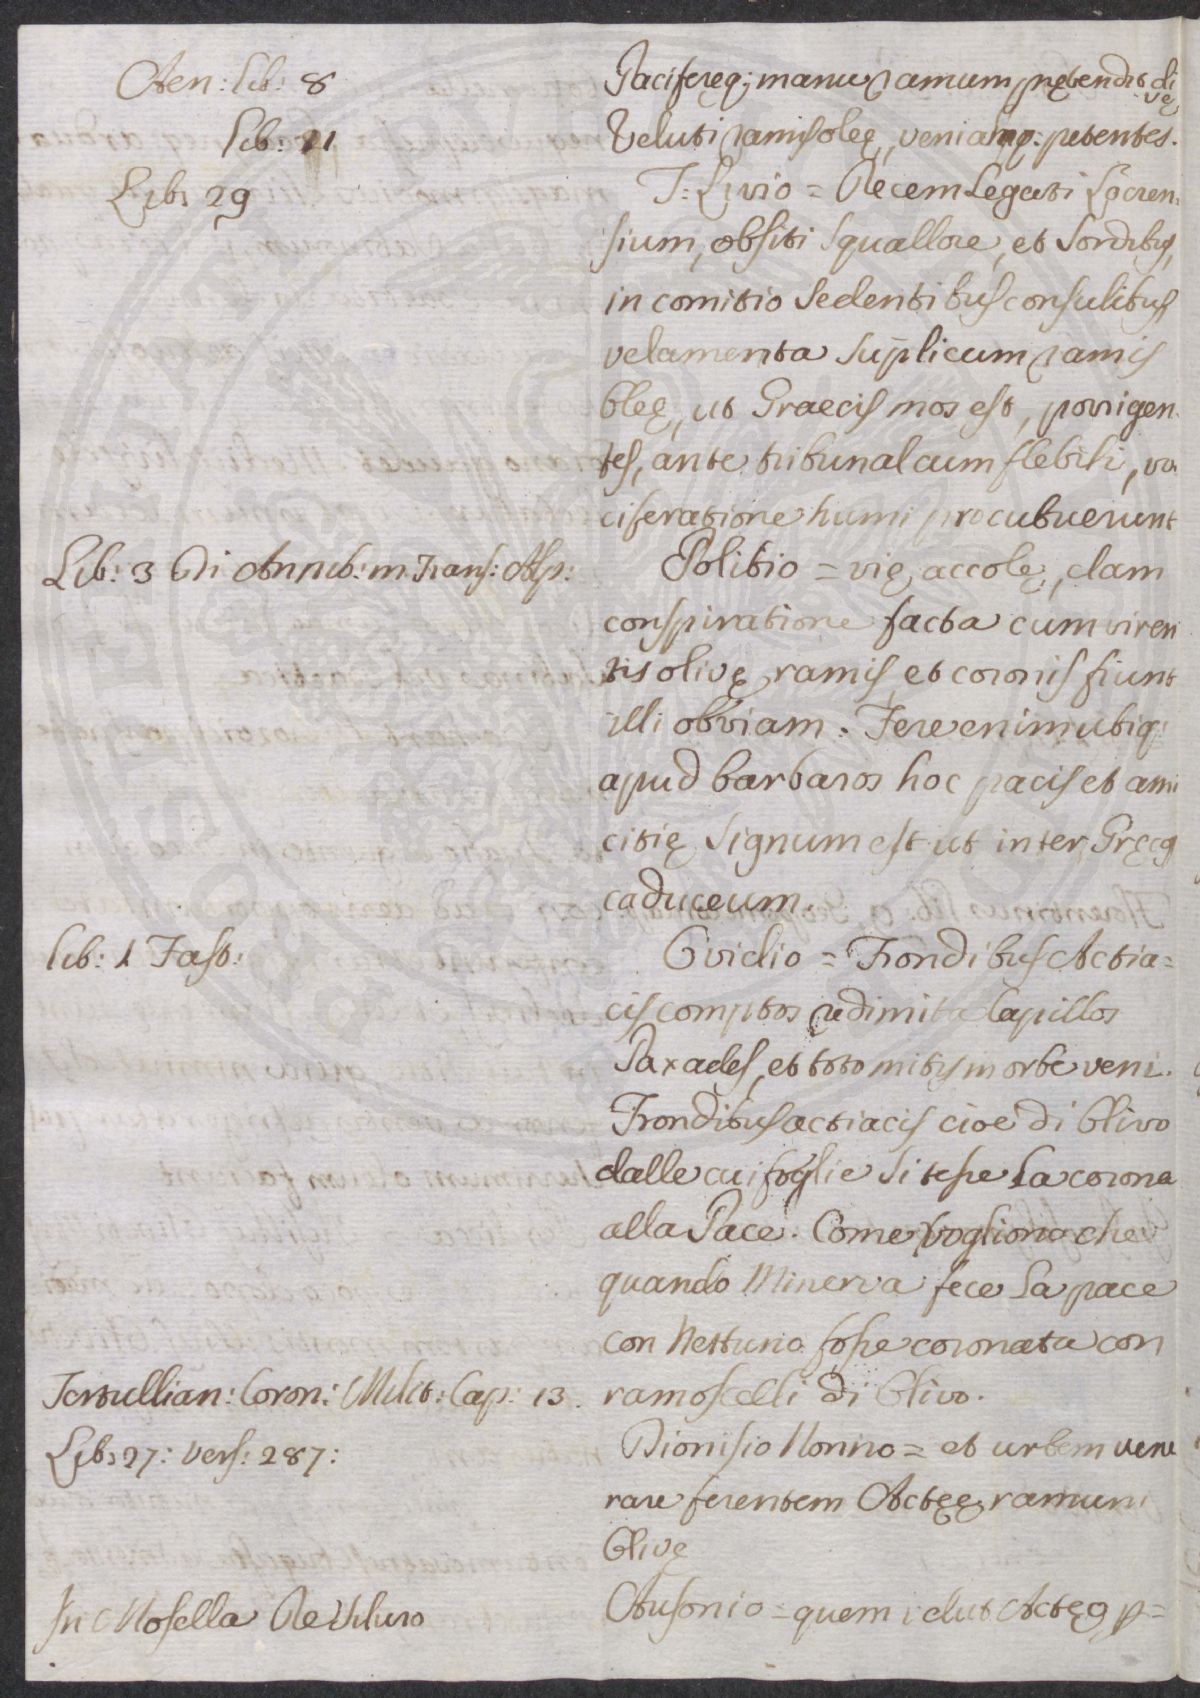 Aen: lib: 8
Paciferęq; manu ramum prętendit oli
vę
lib: 11
Veluti ramis oleę, veniamq: petentes.
Lib: 29
T: Livio = Decem Legati Locren,
sium, obsiti squallore, et sordibus,
in comitio sedentibus consulibus
velamenta suplicum ramis
oleę, ut Graecis mos est, porrigen,
tes, ante tribunal cum flebili, vo
ciferatione humi procubuerunt
Lib: 3 Di Annib: in Trans: Alp:
Polibio = vię, accolę, clam
conspiratione facta cum viren
tis olivę ramis, et coronis fiunt
illi obviam. Fere enim ubiq;
apud barbaros hoc pacis et ami
citię signum est ut inter Gręcos
caduceum.
lib: 1 Fast:
Ovidio = Frondibus Actia=
cis comptos redimita Capillos
Pax ades, et toto mitis in orbe veni.
Frondibus actiacis cioe di Olivo
dalle cui foglie si tesse la corona
alla Pace. Come vogliono che
quando Minerva fece la pace
con Nettuno fosse coronata con
Tertullian: Coron: Milit: Cap: 13.
ramoscelli di Olivo.
Lib: 27: vers: 287:
Dionisio Nonno = et urbem vene
rare ferentem Actęę ramum
Olivę
In Mosella De Viluro
Ausonio = quem velut Actęo p=